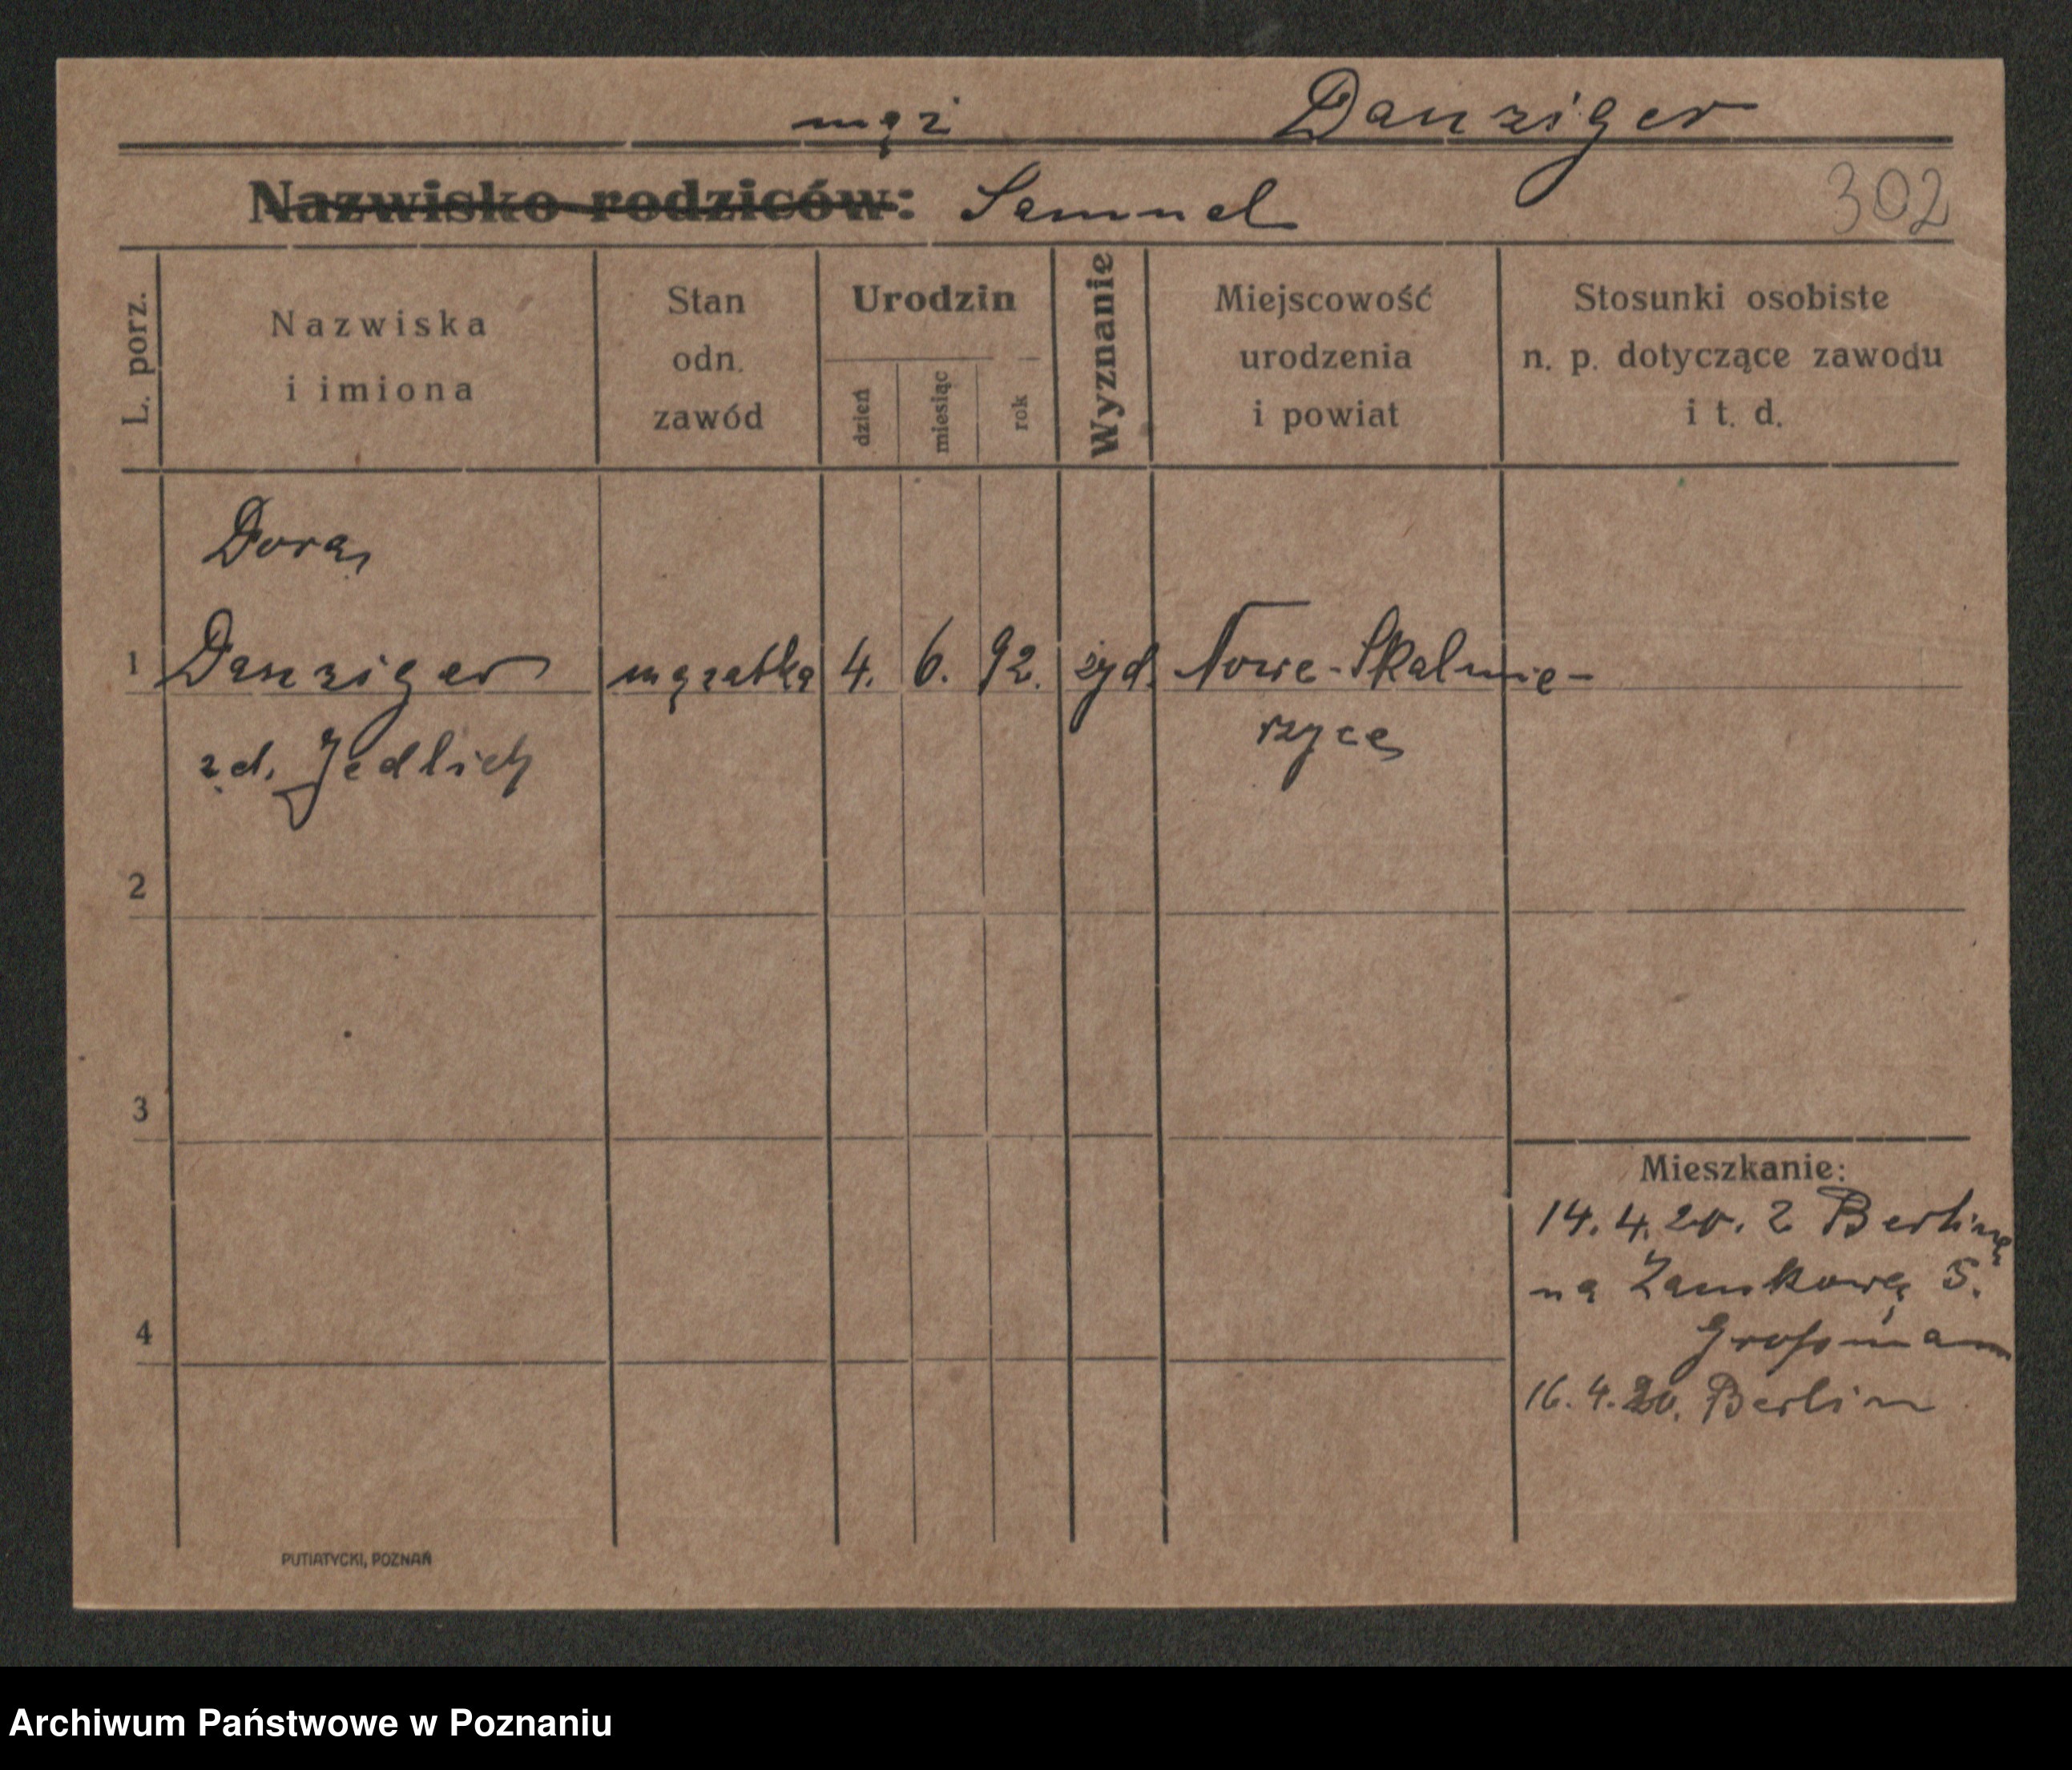 mąż Danziger
Nazwisko rodziców: Samuel
302
L. porz.
Nazwiska
i imiona
Stan
odn.
zawód
Urodzin
dzień
miesiąc
rok
Wyznanie
Miejscowość
urodzenia
i powiat
Stosunki osobiste
n. p. dotyczące zawodu
i t. d.
Dora
1 Danziger mężatka 4. 6. 92. żyd. Nowe-Skalmie-
rzyce
zd. Jedlich
2
3
4
Mieszkanie:
14.4.20. z Berlina
na Zamkową 5.
Großmann
16.4.20. Berlin
PUTIATYCKI, POZNAŃ
Archiwum Państwowe w Poznaniu